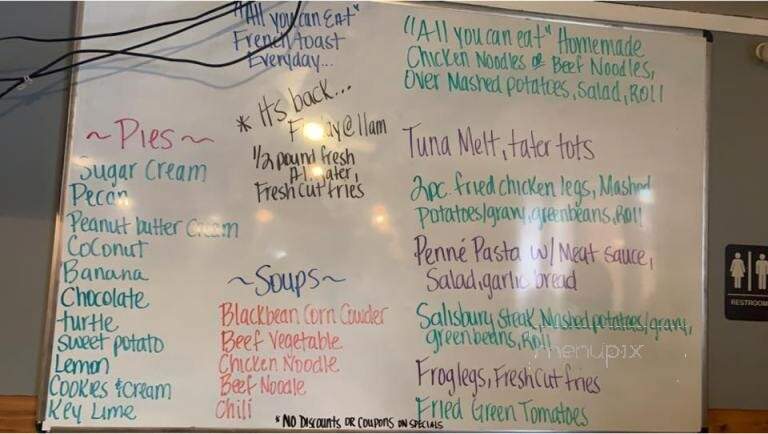 "All you can Eat"
French toast
Everyday...
* Its back...
@ 11am
1/2 pound fresh
Fresh cut fries
~Pies~
Sugar Cream
Pecan
Peanut butter Cream
Coconut
Banana
Chocolate
turtle
sweet potato
Lemon
Cookies & cream
Key Lime
~Soups~
Blackbean Corn Cowder
Beef Vegetable
Chicken Noodle
Beef Noodle
Chili
"All you can eat" Homemade
Chicken Noodles or Beef Noodles,
Over Mashed potatoes, Salad, Roll
Tuna Melt, tater tots
2pc. fried chicken legs, Mashed
potatoes/gravy, greenbeans, Roll
Penné Pasta w/ Meat sauce,
Salad, garlic bread
Salisbury steak, Mashed potatoes/gravy,
greenbeans, Roll
Froglegs, Fresh cut fries
Fried Green Tomatoes
* No Discounts or Coupons on Specials
RESTROOM
menupix